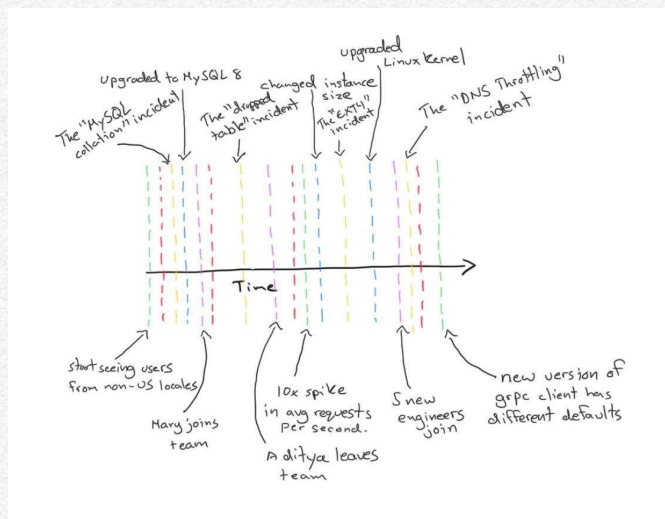 The "MySQL
collation" incident
Upgraded to MySQL 8
The "dropped
table" incident
changed instance
size
The "EXT4"
incident
upgraded
Linux Kernel
The "DNS Throttling"
incident
Time
start seeing users
from non-US locales
Mary joins
team
Aditya leaves
team
10x spike
in avg requests
Per second.
5 new
engineers
join
new version of
grpc client has
different defaults